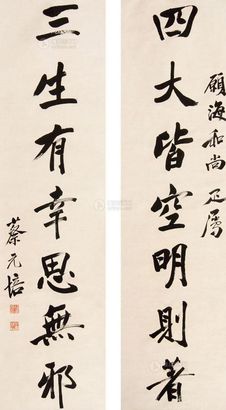 顾海和尚 正属
四大皆空明则著
三生有幸思無邪
蔡元培